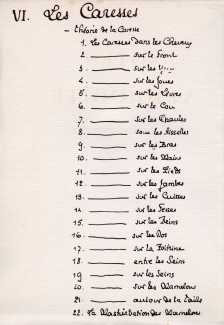 VI. Les Caresses
– Théorie de la Caresse
1. Les Caresses dans les Cheveux
2. ——— sur le Front
3. ——— sur les Yeux
4. ——— sur les Joues
5. ——— sur les Lèvres
6. ——— sur le Cou
7. ——— sur les Epaules
8. ——— sous les Aisselles
9. ——— sur les Bras
10. ——— sur les Mains
11. ——— sur les Pieds
12. ——— sur les Jambes
13. ——— sur les Cuisses
14. ——— sur les Fesses
15. ——— sur les Reins
16. ——— sur le Dos
17. ——— sur la Poitrine
18. ——— entre les Seins
19 ——— sur les Seins
20. ——— sur les Mamelons
21. ——— autour de la Taille
22. La Masturbation des Mamelons